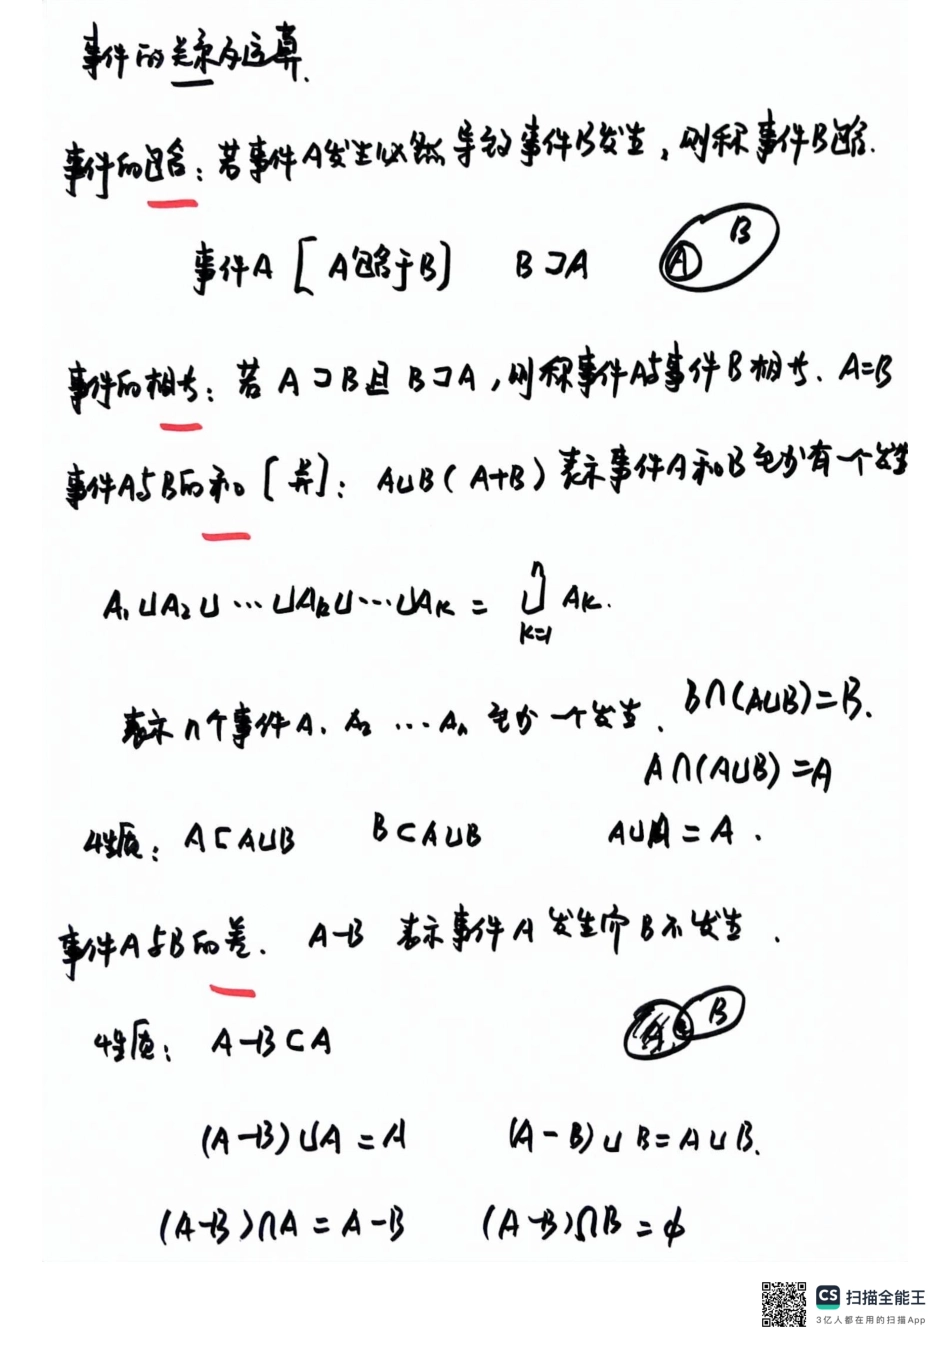 事件的关系与运算.
事件的包含：若事件A发生必然导致事件B发生，则称事件B包含.
事件A [A包含于B] B⊃A
A B
事件的相等：若 A⊃B且 B⊃A，则称事件A与事件B相等. A=B
事件A与B的和[并]：A∪B(A+B)表示事件A和B至少有一个发生
A₁∪A₂∪…∪Ak∪…∪AK = ⋃ⁿₖ₌₁ AK.
表示 n个事件A₁ A₂ …Aₙ 至少一个发生.
B∩(A∪B)=B.
A∩(A∪B)=A
性质：A⊂A∪B B⊂A∪B A∪A=A.
事件A与B的差. A-B 表示事件A发生而B不发生.
A B
性质：A-B⊂A
(A-B)∪A=A (A-B)∪B=A∪B.
(A-B)∩A=A-B (A-B)∩B=φ
CS 扫描全能王
3亿人都在用的扫描App